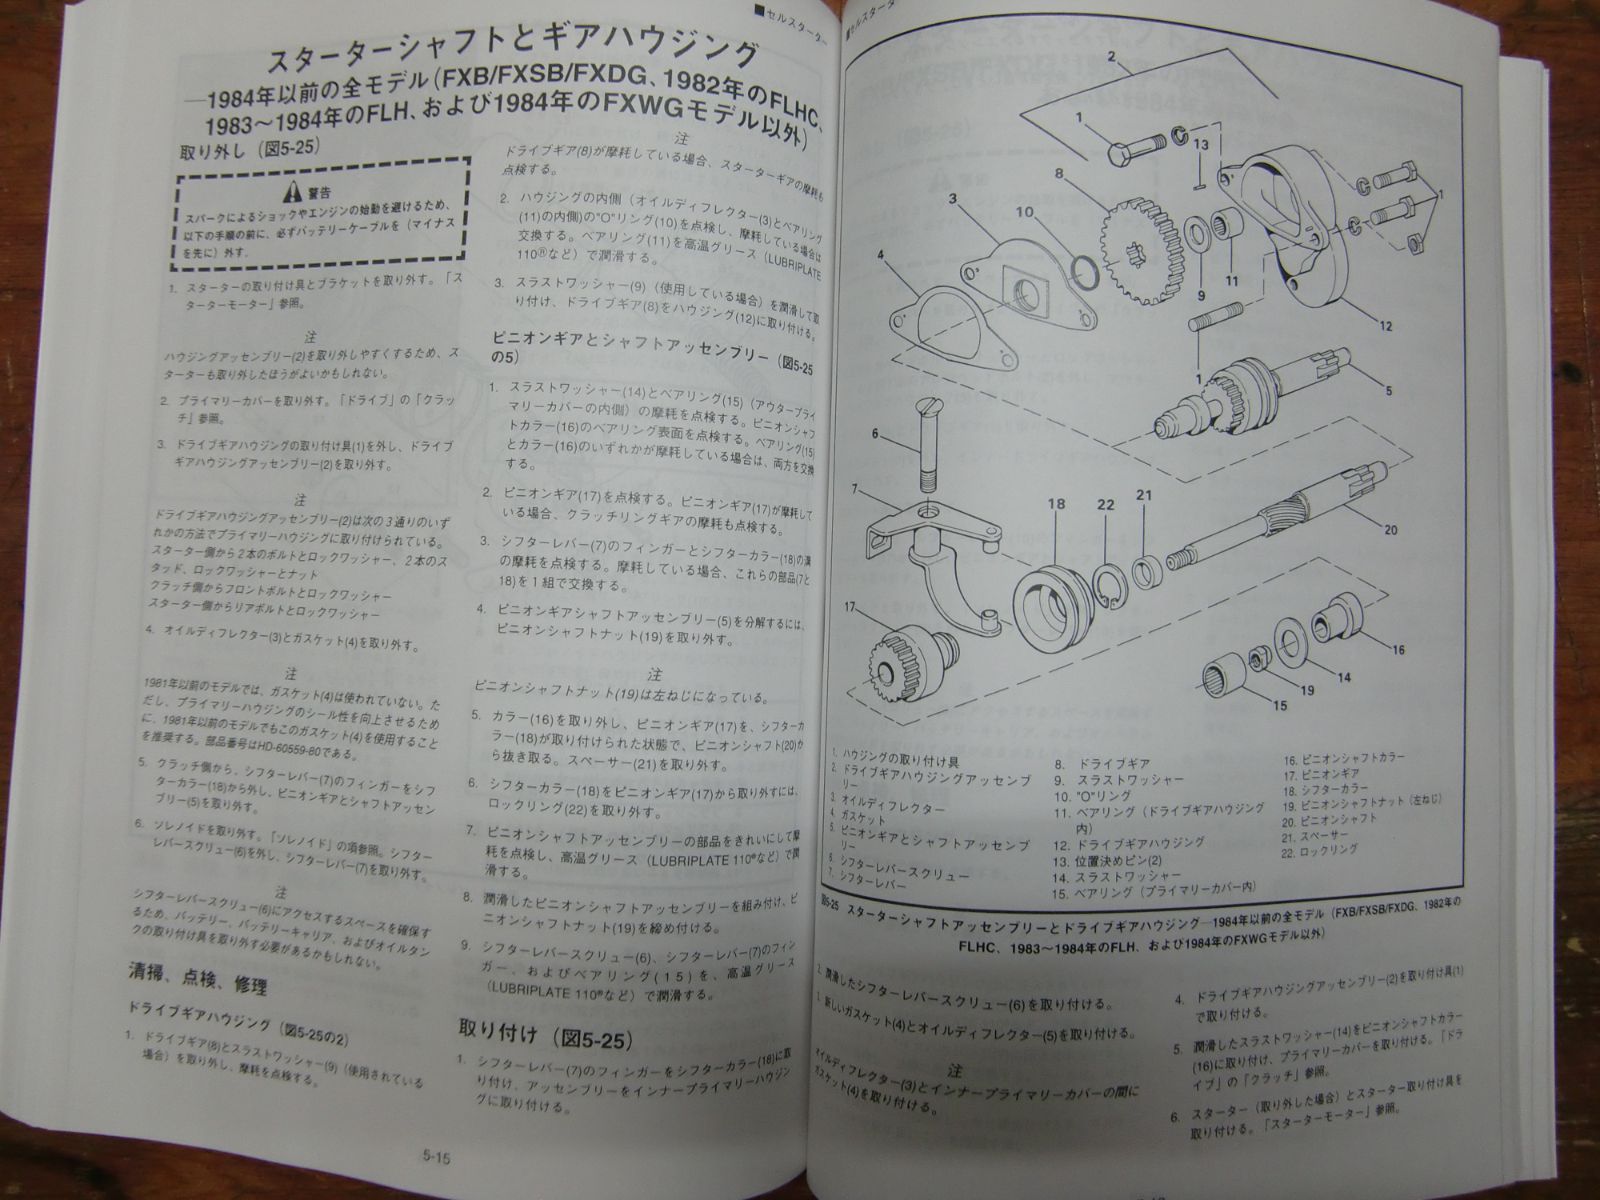 ■セルスターター
スターターシャフトとギアハウジング
—1984年以前の全モデル(FXB/FXSB/FXDG、1982年のFLHC、
1983〜1984年のFLH、および1984年のFXWGモデル以外)
取り外し(図5-25)
警告
スパークによるショックやエンジンの始動を避けるため、
以下の手順の前に、必ずバッテリーケーブルを(マイナス
を先に)外す。
1. スターターの取り付け具とブラケットを取り外す。「ス
ターターモーター」参照。
注
ハウジングアッセンブリー(2)を取り外しやすくするため、ス
ターターも取り外したほうがよいかもしれない。
2. プライマリーカバーを取り外す。「ドライブ」の「クラッ
チ」参照。
3. ドライブギアハウジングの取り付け具(1)を外し、ドライブ
ギアハウジングアッセンブリー(2)を取り外す。
注
ドライブギアハウジングアッセンブリー(2)は次の3通りのいず
れかの方法でプライマリーハウジングに取り付けられている。
スターター側から2本のボルトとロックワッシャー、2本のス
タッド、ロックワッシャーとナット
クラッチ側からフロントボルトとロックワッシャー
スターター側からリアボルトとロックワッシャー
4. オイルディフレクター(3)とガスケット(4)を取り外す。
注
1981年以前のモデルでは、ガスケット(4)は使われていない。た
だし、プライマリーハウジングのシール性を向上させるため
に、1981年以前のモデルでもこのガスケット(4)を使用すること
を推奨する。部品番号はHD-60559-80である。
5. クラッチ側から、シフターレバー(7)のフィンガーをシフ
ターカラー(18)から外し、ピニオンギアとシャフトアッセン
ブリー(5)を取り外す。
6. ソレノイドを取り外す。「ソレノイド」の項参照。シフター
レバースクリュー(6)を外し、シフターレバー(7)を取り外す。
注
シフターレバースクリュー(6)にアクセスするスペースを確保す
るため、バッテリー、バッテリーキャリア、およびオイルタン
クの取り付け具を取り外す必要があるかもしれない。
清掃、点検、修理
ドライブギアハウジング(図5-25の2)
1. ドライブギア(8)とスラストワッシャー(9)(使用されている
場合)を取り外し、摩耗を点検する。
注
ドライブギア(8)が摩耗している場合、スターターギアの摩耗も
点検する。
2. ハウジングの内側(オイルディフレクター(3)とベアリング
(11)の内側)の"O"リング(10)を点検し、摩耗している場合は
交換する。ベアリング(11)を高温グリース(LUBRIPLATE
110®など)で潤滑する。
3. スラストワッシャー(9)(使用している場合)を潤滑して取
り付け、ドライブギア(8)をハウジング(12)に取り付ける。
ピニオンギアとシャフトアッセンブリー(図5-25
の5)
1. スラストワッシャー(14)とベアリング(15)(アウタープライ
マリーカバーの内側)の摩耗を点検する。ピニオンシャフ
トカラー(16)のベアリング表面を点検する。ベアリング(15)
とカラー(16)のいずれかが摩耗している場合は、両方を交換
する。
2. ピニオンギア(17)を点検する。ピニオンギア(17)が摩耗して
いる場合、クラッチリングギアの摩耗も点検する。
3. シフターレバー(7)のフィンガーとシフターカラー(18)の溝
の摩耗を点検する。摩耗している場合、これらの部品(7と
18)を1組で交換する。
4. ピニオンギアシャフトアッセンブリー(5)を分解するには、
ピニオンシャフトナット(19)を取り外す。
注
ピニオンシャフトナット(19)は左ねじになっている。
5. カラー(16)を取り外し、ピニオンギア(17)を、シフターカ
ラー(18)が取り付けられた状態で、ピニオンシャフト(20)か
ら抜き取る。スペーサー(21)を取り外す。
6. シフターカラー(18)をピニオンギア(17)から取り外すには、
ロックリング(22)を取り外す。
7. ピニオンシャフトアッセンブリーの部品をきれいにして摩
耗を点検し、高温グリース(LUBRIPLATE 110®など)で潤
滑する。
8. 潤滑したピニオンシャフトアッセンブリーを組み付け、ピ
ニオンシャフトナット(19)を締め付ける。
9. シフターレバースクリュー(6)、シフターレバー(7)のフィン
ガー、およびベアリング(15)を、高温グリース
(LUBRIPLATE 110®など)で潤滑する。
取り付け(図5-25)
1. シフターレバー(7)のフィンガーをシフターカラー(18)に取
り付け、アッセンブリーをインナープライマリーハウジン
グに取り付ける。
5-15
■セルスターター
2
1
13
8
3
10
4
1
9
11
12
1
5
6
7
18
22
21
20
17
16
14
19
15
1. ハウジングの取り付け具
2. ドライブギアハウジングアッセンブ
リー
3. オイルディフレクター
4. ガスケット
5. ピニオンギアとシャフトアッセンブ
リー
6. シフターレバースクリュー
7. シフターレバー
8. ドライブギア
9. スラストワッシャー
10. "O"リング
11. ベアリング(ドライブギアハウジング
内)
12. ドライブギアハウジング
13. 位置決めピン(2)
14. スラストワッシャー
15. ベアリング(プライマリーカバー内)
16. ピニオンシャフトカラー
17. ピニオンギア
18. シフターカラー
19. ピニオンシャフトナット(左ねじ)
20. ピニオンシャフト
21. スペーサー
22. ロックリング
図5-25 スターターシャフトアッセンブリーとドライブギアハウジング—1984年以前の全モデル(FXB/FXSB/FXDG、1982年の
FLHC、1983〜1984年のFLH、および1984年のFXWGモデル以外)
2. 潤滑したシフターレバースクリュー(6)を取り付ける。
3. 新しいガスケット(4)とオイルディフレクター(5)を取り付ける。
注
オイルディフレクター(3)とインナープライマリーカバーの間に
ガスケット(4)を取り付ける。
4. ドライブギアハウジングアッセンブリー(2)を取り付け具(1)
で取り付ける。
5. 潤滑したスラストワッシャー(14)をピニオンシャフトカラー
(16)に取り付け、プライマリーカバーを取り付ける。「ドラ
イブ」の「クラッチ」参照。
6. スターター(取り外した場合)とスターター取り付け具を
取り付ける。「スターターモーター」参照。